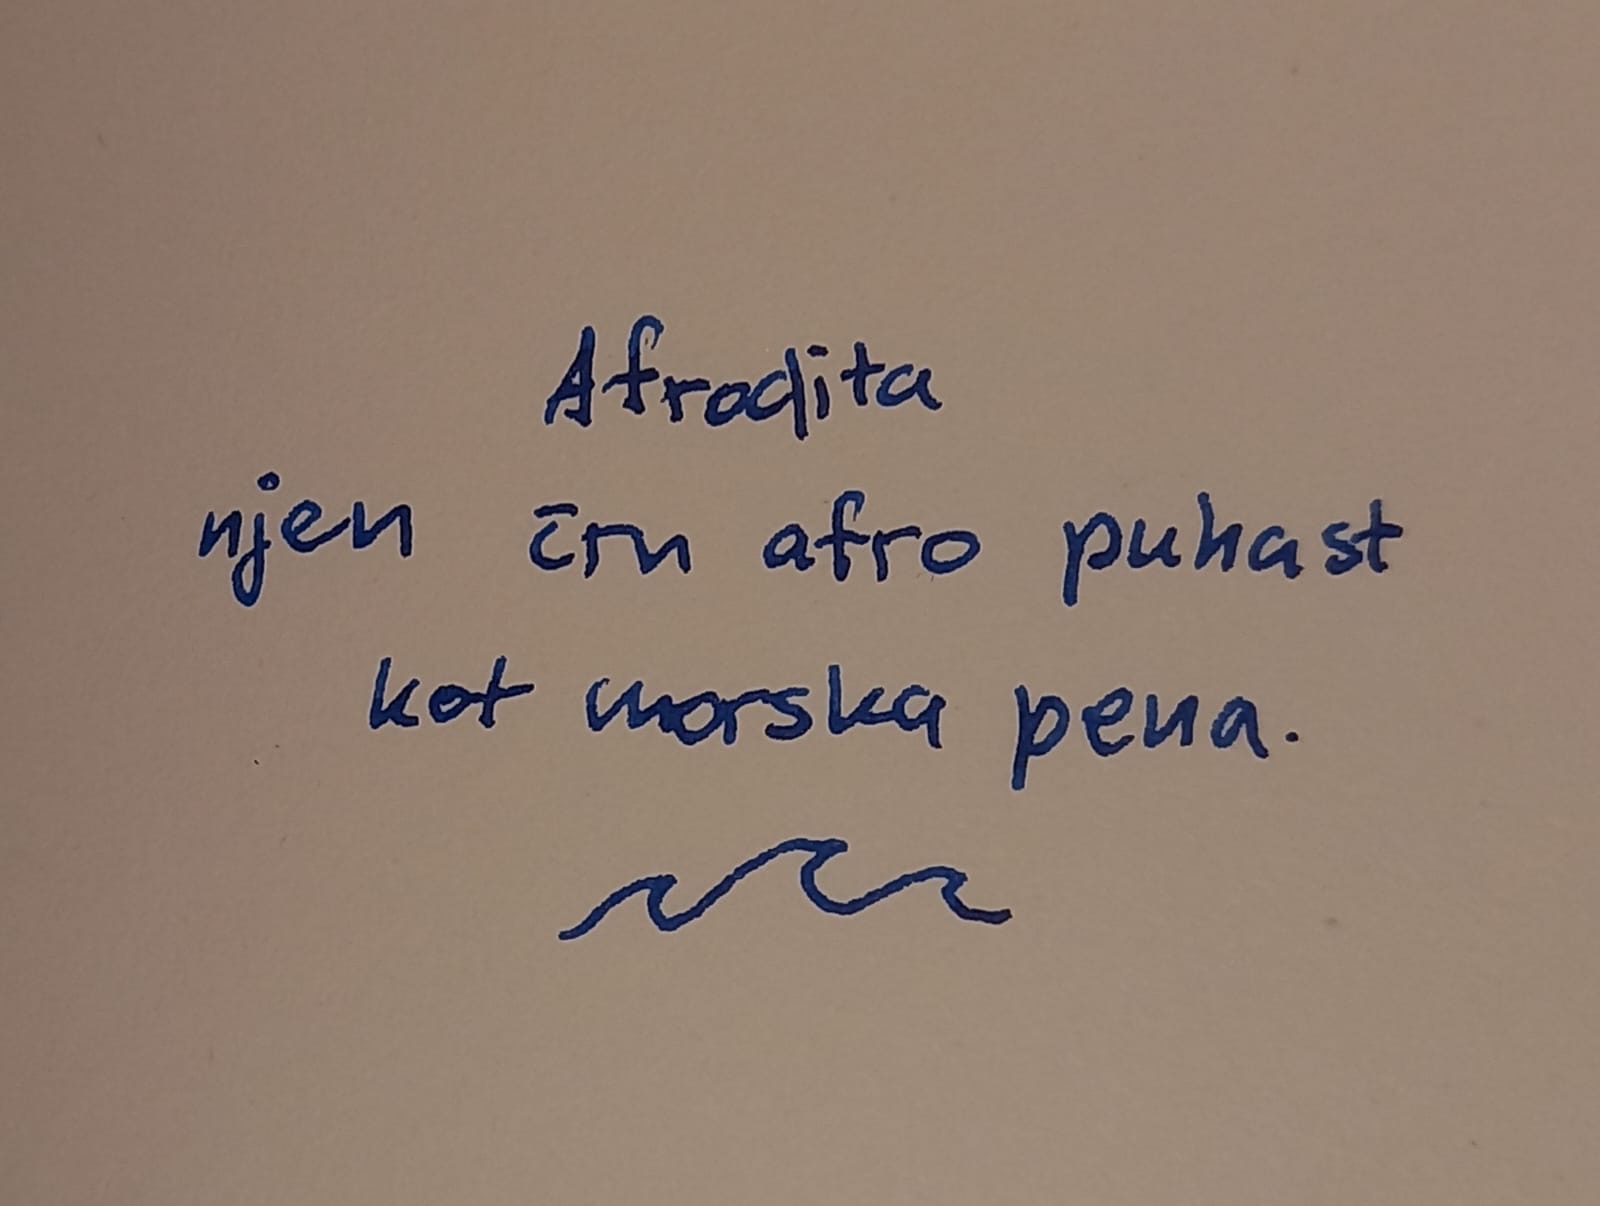 Afrodita
njen črn afro puhast
kot morska pena.